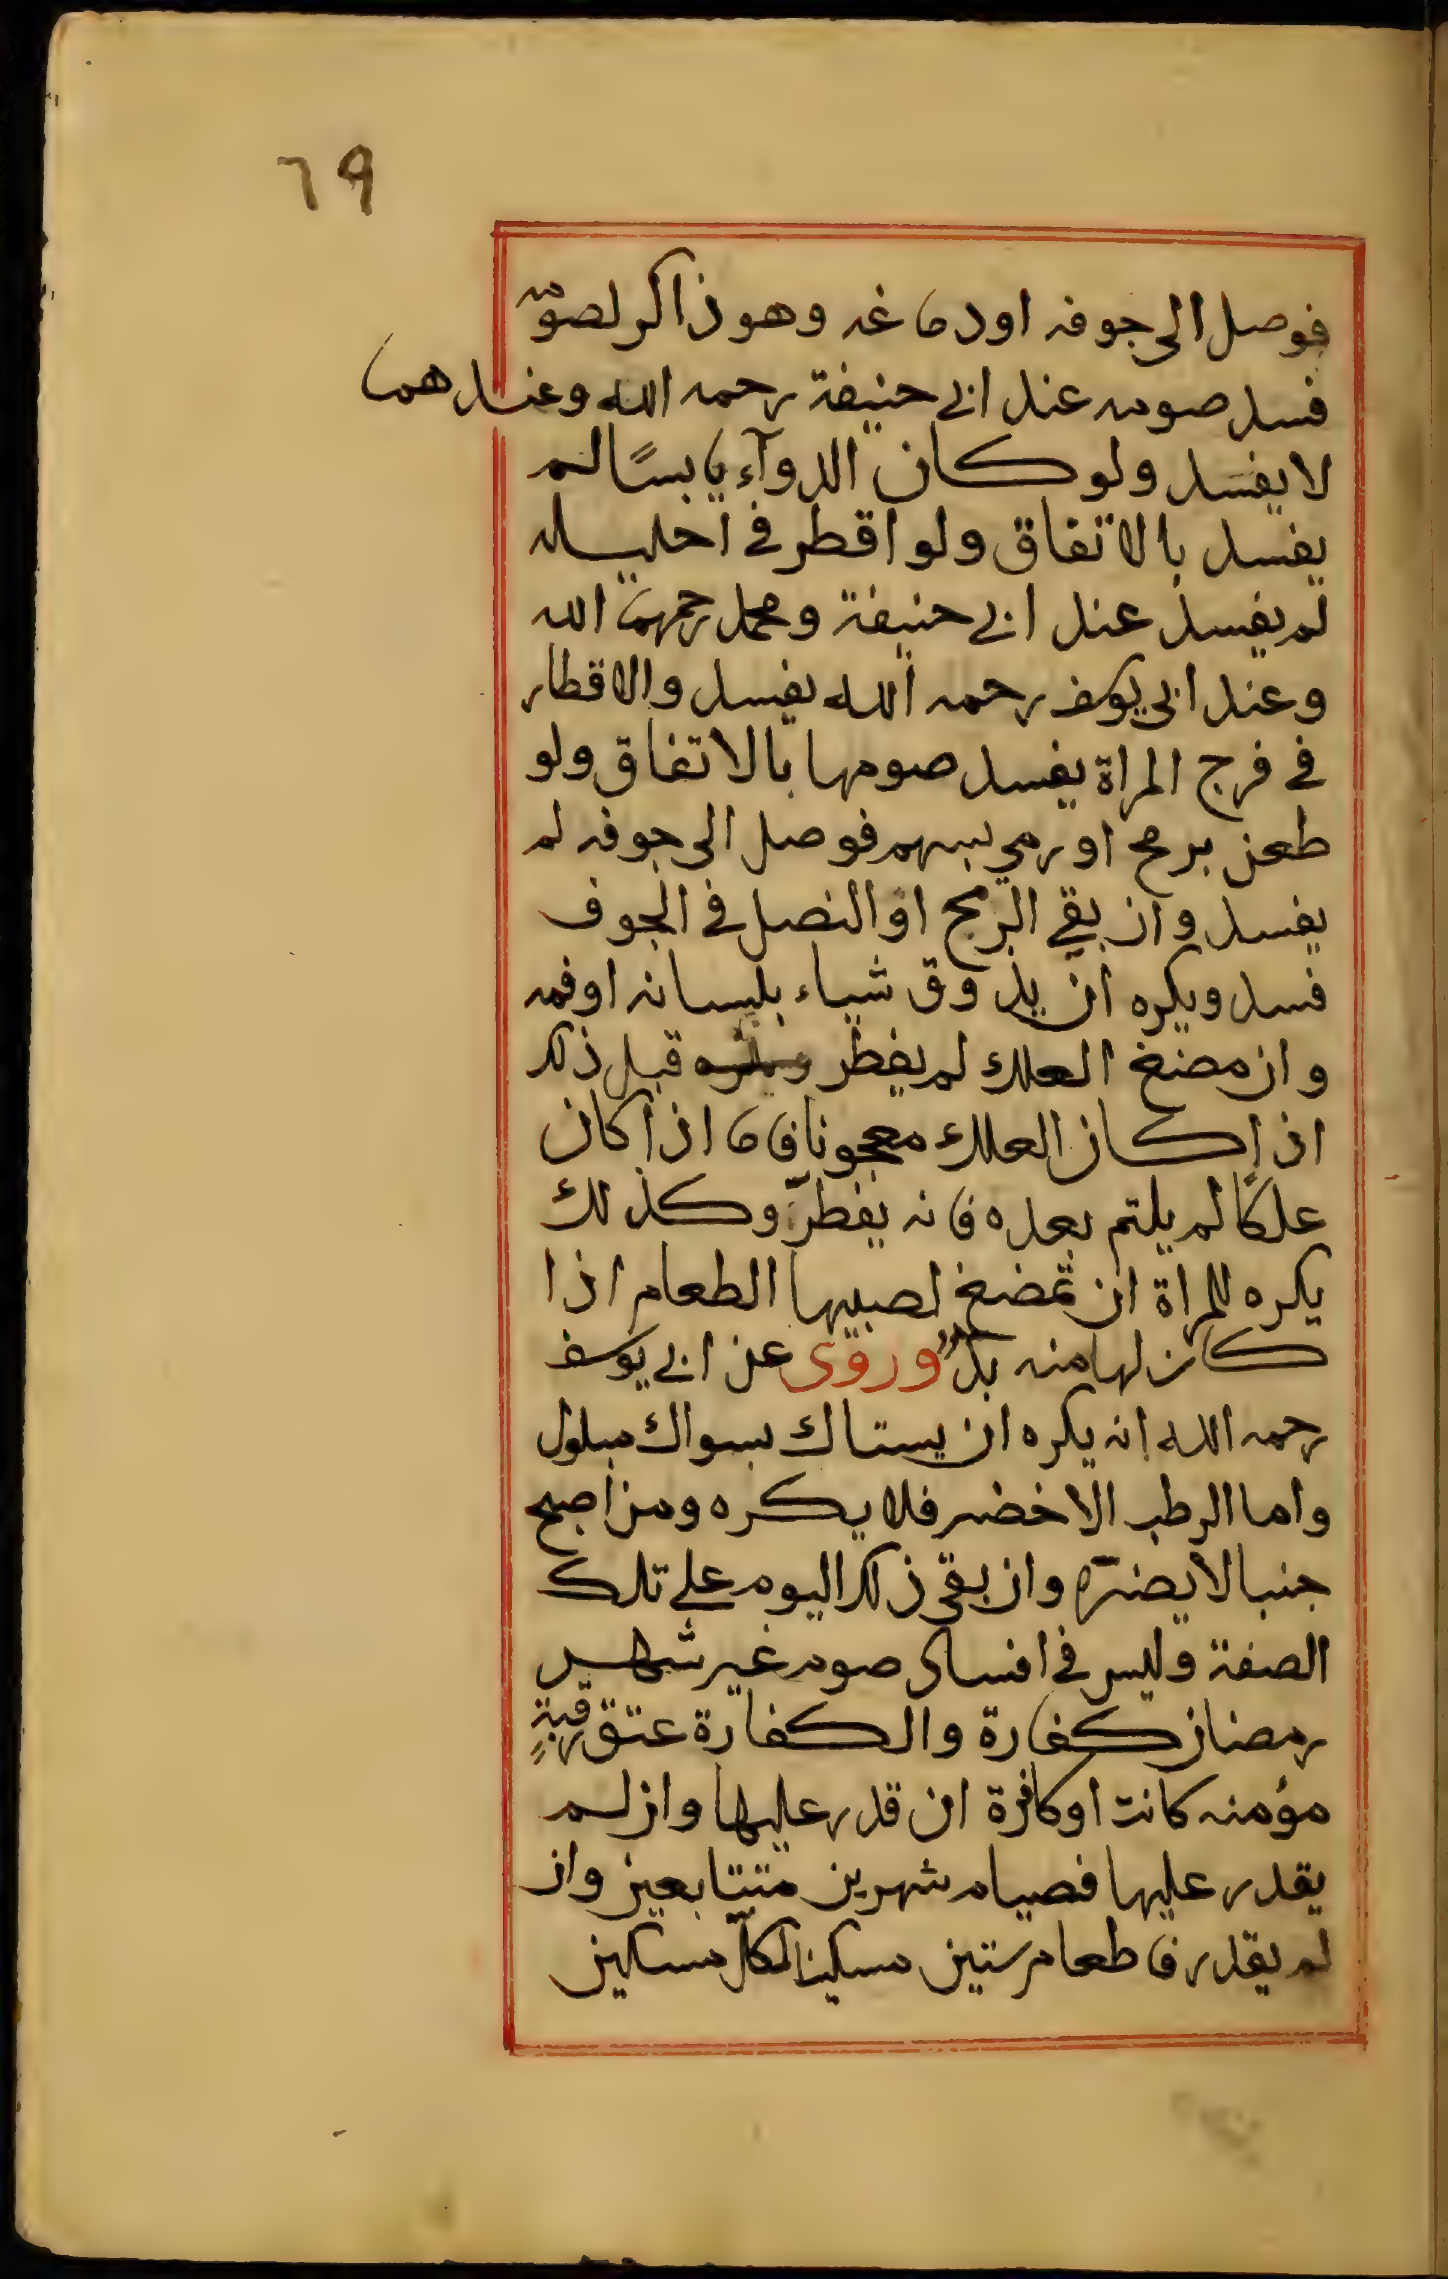 ٦٩
فوصل الى جوفه او دماغه وهو ذاكر لصومه
فسد صومه عند ابي حنيفة رحمه الله وعندهما
لا يفسد ولو كان الدوآء يابسًا لم
يفسد بالاتفاق ولو اقطر في احليله
لم يفسد عند ابي حنيفة ومحمد رحمهما الله
وعند ابي يوسف رحمه الله يفسد والاقطار
في فرج المراة يفسد صومها بالاتفاق ولو
طعن برمح او رمي بسهم فوصل الى جوفه لم
يفسد وان بقي الرمح او النصل في الجوف
فسد ويكره ان يذوق شياء بلسانه او فمه
وان مضغ العلك لم يفطر ويكره قيل ذلك
اذا كان العلك معجونا فاما اذا كان
علكًا لم يلتم بعده فانه يفطر وكذلك
يكره للمراة ان تمضغ لصبيها الطعام اذا
كان لها منه بدٌّ وروى عن ابي يوسف
رحمه الله انه يكره ان يستاك بسواك مبلول
واما الرطب الاخضر فلا يكره ومن اصبح
جنبا لا يضرّه وان بقى ذلك اليوم على تلك
الصفة وليس في افساد صوم غير شهر
رمضان كفارة والكفارة عتق رقبةٍ
مؤمنه كانت او كافرة ان قدر عليها وان لم
يقدر عليها فصيام شهرين متتابعين وان
لم يقدر فاطعام ستين مسكينا لكل مسكين